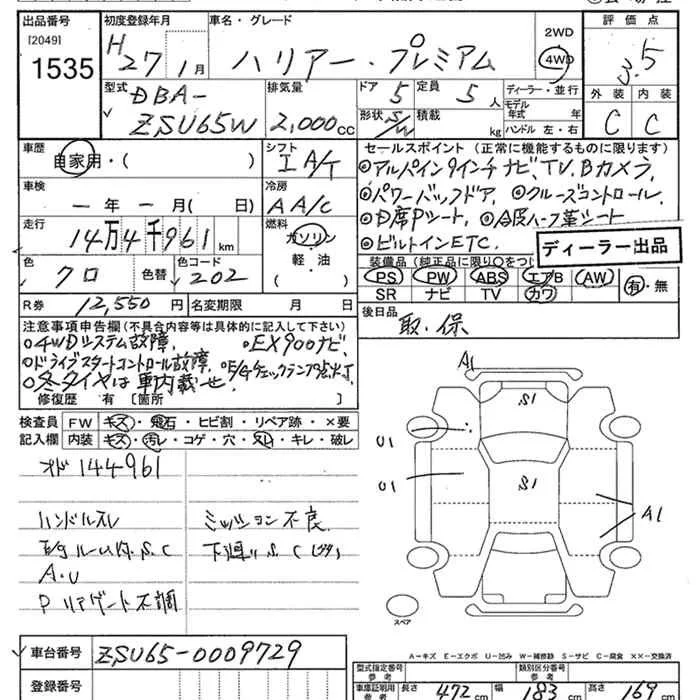 出品番号 初度登録年月 車名・グレード 評価点
[2049] 2WD
1535 H27 1月 ハリアー・プレミアム 4WD 3.5
型式 排気量 ドア 定員 ディーラー・並行 外装 内装
DBA-ZSU65W 2,000cc 5 5人 モデル年式 年 C C
形状 S/W 積載 kg ハンドル 左・右
車歴 シフト セールスポイント (正常に機能するものに限ります)
自家用・( ) IA/T ◎アルパイン9インチナビ、TV、Bカメラ、
車検 冷房 ◎パワーバックドア、◎クルーズコントロール、
ー年ー月( 日) AA/C ◎D席Pシート、◎合皮ハーフ革シート
走行 燃料 ◎ビルトインETC.
14万4千961km ガソリン 軽・油 ディーラー出品
色 色替 色コード 装備品(純正品に限り○をつけ
クロ 202 PS PW ABS エアB AW 有・無
SR ナビ TV カワ
R券 12,550円 名変期限 月 日 後日品
取・保
注意事項申告欄(不具合内容等は具体的に記入して下さい)
○4WDシステム故障、 ○EX900ナビ、
○ドライブスタートコントロール故障、○E/Gチェックランプ点灯
○冬タイヤは車内載せ
修復歴 有 [箇所 ]
検査員 FW キズ・飛石・ヒビ割・リペア跡・×要
記入欄 内装 キズ・汚レ・コゲ・穴・スレ・キレ・破レ
オド144961
ハンドルスレ ミッション不良
S.C 下廻りS.C
A.U
Pリアゲート不調
A1
S1
U1
U1
S1
A1
スペア
A-キズ E-エクボ U-凹み W-補修跡 S-サビ C-腐食 XX-交換済
車台番号 ZSU65-0009729
登録番号
型式指定番号 参考 類別区分番号 参考
車庫証明用 参考 長さ 472cm 幅 183cm 高さ 169cm